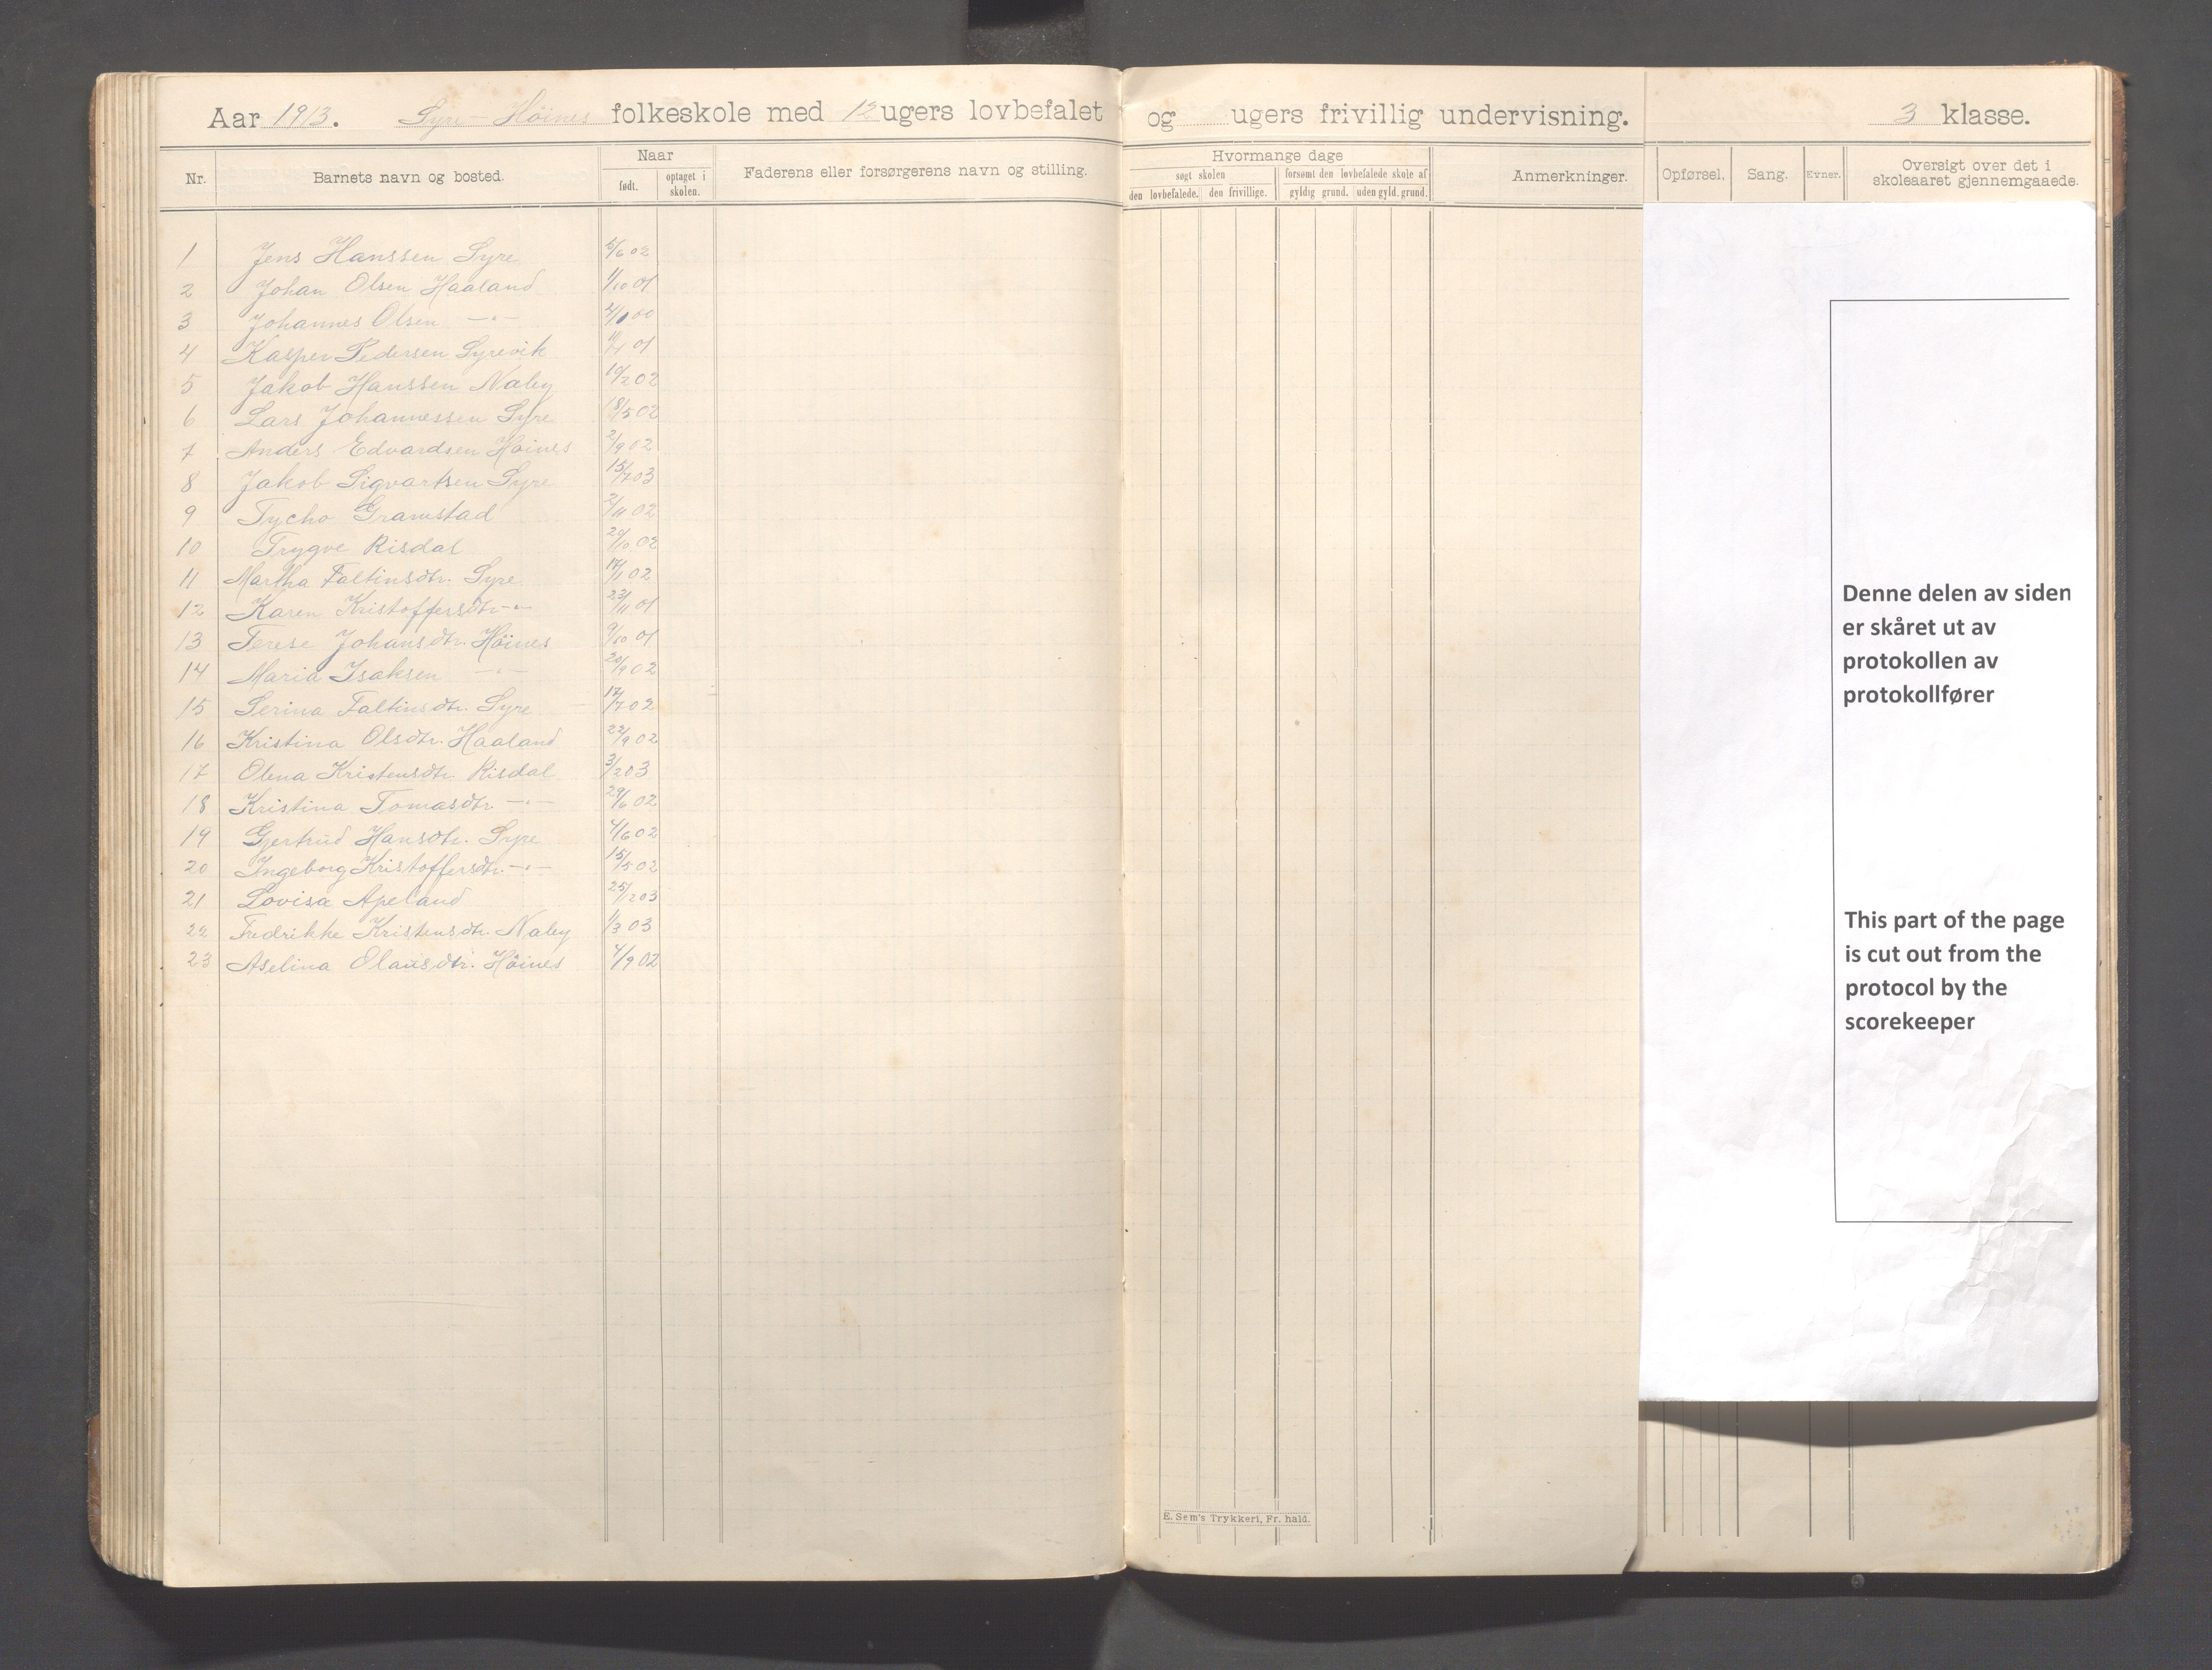 Aar 1913. Syre - Höines folkeskole med 12 ugers lovbefalet og ugers frivillig undervisning. 3 klasse.
Nr. Barnets navn og bosted. Naar født. optaget i skolen. Faderens eller forsørgerens navn og stilling.
Hvormange dage
søgt skolen forsømt den lovbefalede skole af
den lovbefalede. den frivillige. gyldig grund. uden gyld. grund. Anmerkninger.
Opførsel. Sang. Evner. Oversigt over det i skoleaaret gjennemgaaede.
1 Jens Hanssen Syre 5/6 02
2 Johan Olsen Haaland 1/10 01
3 Johannes Olsen -"- 00
4 Kasper Pedersen Syrevik 01
5 Jakob Hanssen Naley 19/2 02
6 Lars Johannessen Syre 18/5 02
7 Anders Edvardsen Höines 2/9 02
8 Jakob Sigvartsen Syre 15/7 03
9 Tycho Gramstad 2/11 02
10 Trygve Risdal 20/10 02
11 Martha Faltinsdtr. Syre 17/11 02
12 Karen Kristoffersdtr -"- 23/11 01
13 Terese Johansdtr. Höines 9/10 01
14 Maria Isaksen -"- 20/9 02
15 Serina Faltinsdtr. Syre 17/7 02
16 Kristina Olsdtr. Haaland 22/9 02
17 Olena Kristensdtr. Risdal 3/2 03
18 Kristina Tomasdtr -"- 29/6 02
19 Gjertrud Hansdtr. Syre 4/6 02
20 Ingeborg Kristoffersdtr. -"- 15/5 02
21 Lovisa Apeland 25/2 03
22 Fredrikke Kristensdtr. Naley 1/3 03
23 Aselina Olausdtr. Höines 4/9 02
E. Sem's Trykkeri, Fr. hald.
Denne delen av siden
er skåret ut av
protokollen av
protokollfører
This part of the page
is cut out from the
protocol by the
scorekeeper